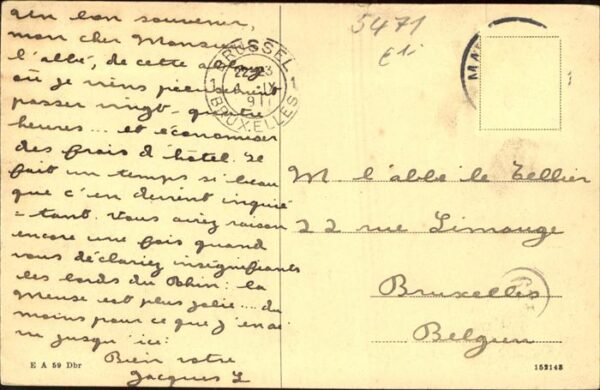 un bon souvenir,
mon cher Monsieur
l'abbé, de cette
où je viens précisément
passer vingt-quatre
heures... et économiser
des frais d'hôtel. Il
fait un temps si beau
que c'en devient inquié-
-tant. Vous aviez raison
encore une fois quand
vous déclariez insignifiants
les bords du Rhin: la
Meuse est plus jolie... du
moins pour ce que j'en ai
vu jusqu'ici.
Bien vôtre
Jacques L
E A 59 Dbr
5471
BRUSSEL 1
1 BRUXELLES
M l'abbé le Tellier
22 rue Limauge
Bruxelles
Belgien
152143